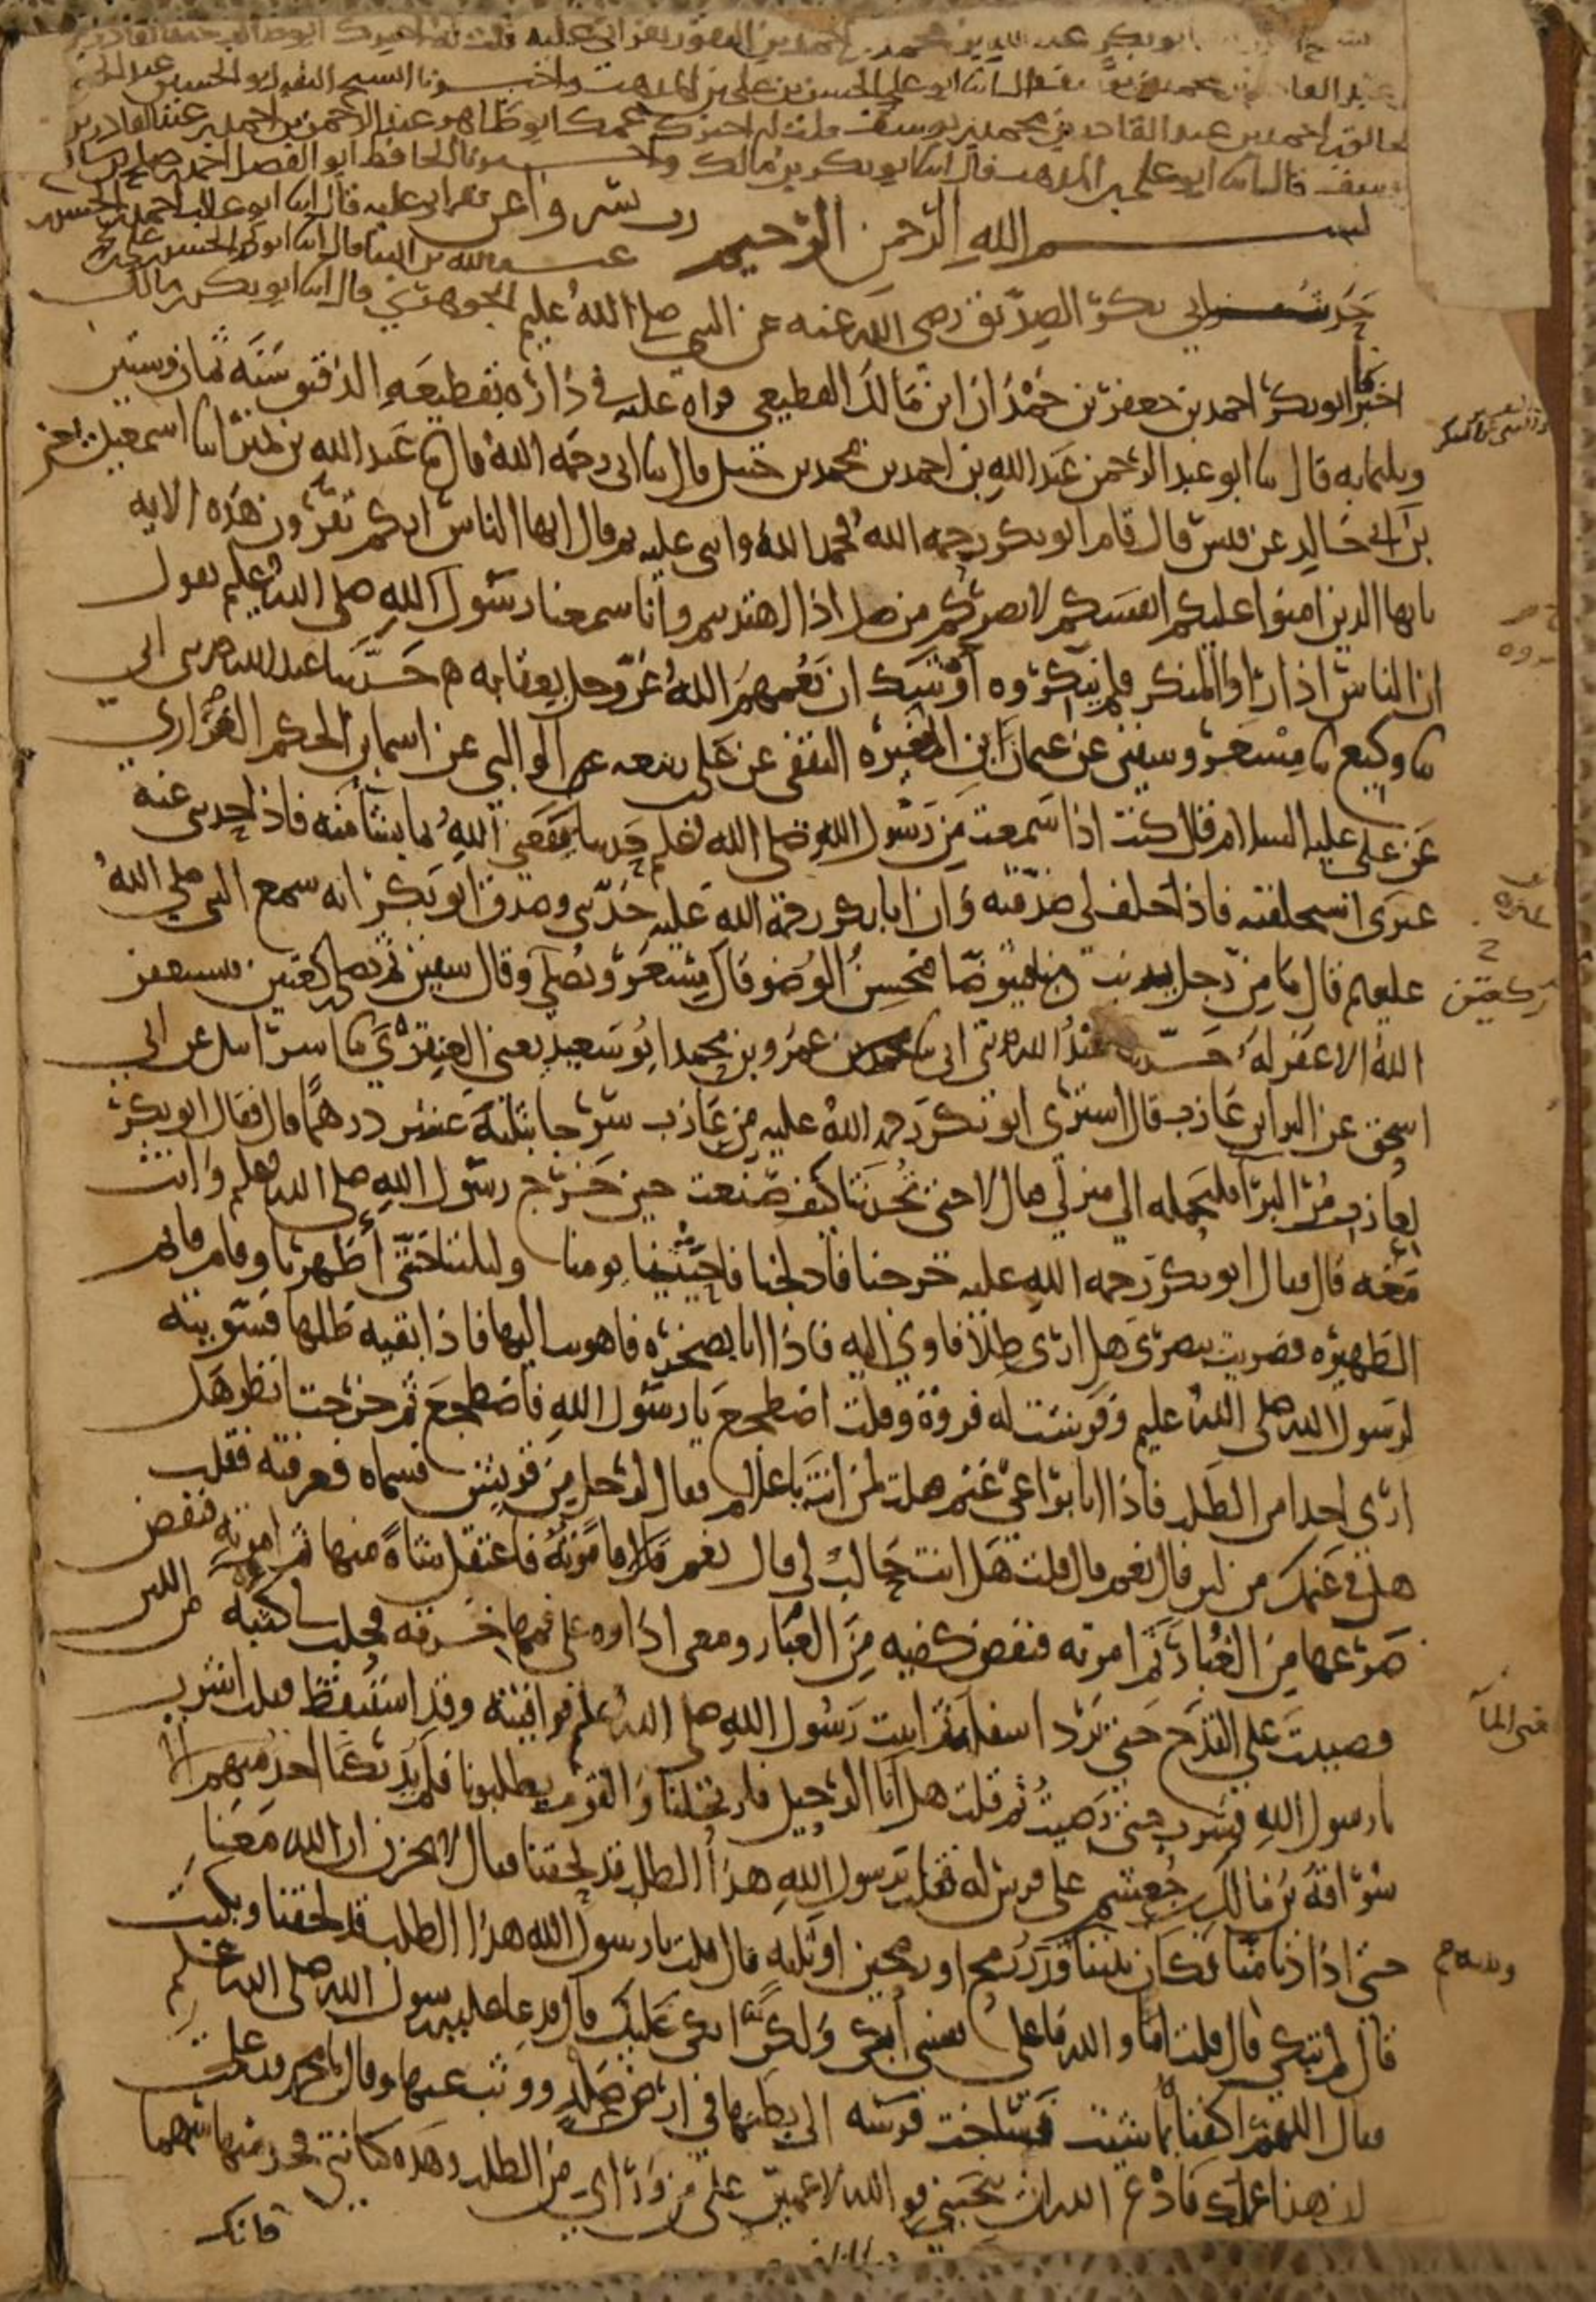 ابو بكر عبد الله بن محمد بن احمد بن النقور بقراتى عليه قلت له اخبرك ابو طالب عبد القادر بن
عبد القادر بن محمد بن يوسف قال انا ابو علي الحسن بن علي بن المذهب واخبرنا الشيخ الثقه ابو الحسين عبد الحق
عبد الخالق بن احمد بن عبد القادر بن محمد بن يوسف قلت له اخبرك عمك ابو طاهر عبد الرحمن بن احمد بن عبد القادر بن
يوسف قال انا ابو علي بن المذهب قال انا ابو بكر بن مالك واخبرنا الحافظ ابو الفضل احمد بن صالح بن
بسم الله الرحمن الرحيم رب يسر واعن بقراتى عليه قال انا ابو غالب احمد بن الحسن
بن عبد الله بن البنا قال انا ابو محمد الحسن بن علي
حديث ابي بكر الصديق رضى الله عنه عن النبي صلى الله عليه الجوهري قال انا ابو بكر بن مالك
اخبرنا ابو بكر احمد بن جعفر بن حمدان ابن مالك القطيعي قراه عليه في داره بقطيعه الدقيق سنه ثمان وستين
وثلثمايه قال نا ابو عبد الرحمن عبد الله بن احمد بن محمد بن حنبل قال نا ابى رحمه الله قال نا عبد الله بن نمير انا اسمعيل يعنى
بن ابى خالد عن قيس قال قام ابو بكر رحمه الله فحمد الله واثنى عليه ثم قال ايها الناس انكم تقرون هذه الايه
يايها الذين امنوا عليكم انفسكم لا يضركم من ضل اذا اهتديتم وانا سمعنا رسول الله صلى الله عليه يقول
ان الناس اذا راوا المنكر فلم ينكروه اوشك ان يعمهم الله عز وجل بعقابه ه حدثنا عبد الله حدثنى ابي
نا وكيع نا مسعر وسفين عن عثمان ابن المغيره الثقفى عن على بن ربيعه الوالبي عن اسما بن الحكم الفزاري
عن على عليه السلام قال كنت اذا سمعت من رسول الله صلى الله عليه حديثا نفعني الله بما يشا منه فاذا حدثنى عنه
غيرى استحلفته فاذا حلف لى صدقته وان ابا بكر رحمة الله عليه حدثنى وصدق ابو بكر انه سمع النبي صلى الله
عليه قال ما من رجل يذنب ذنبا فيتوضا فيحسن الوضو قال مسعر ويصلى وقال سفين ثم يصلى ركعتين فيستغفر
ركعتين
الله الا غفر له حدثنا عبد الله حدثنى ابى نا عمرو بن محمد ابو سعيد يعنى العنقزي نا اسرائيل عن ابى
اسحق عن البرا بن عازب قال اشترى ابو بكر رحمة الله عليه من عازب سرجا بثلثة عشر درهما قال فقال ابو بكر
لعازب مر البرا فليحمله الى منزلي فقال لا حتى تحدثنا كيف صنعت حين خرج رسول الله صلى الله عليه وانت
معه قال فقال ابو بكر رحمة الله عليه خرجنا فادلجنا فاحثثنا يومنا وليلتنا حتى اظهرنا وقام قايم
الظهيره فضربت ببصرى هل ارى ظلا فاوي اليه فاذا انا بصخره فاهويت اليها فاذا بقيه ظلها فسويته
لرسول الله صلى الله عليه وفرشت له فروة وقلت اضطجع يا رسول الله فاضطجع ثم خرجت انظر هل
ارى احدا من الطلب فاذا انا براعي غنم فقلت لمن انت يا غلام فقال لرجل من قريش فسماه فعرفته فقلت
هل في غنمك من لبن قال نعم قال قلت هل انت حالب لى قال نعم قال فامرته فاعتقل شاة منها ثم امرته فنفض
ضرعها من الغبار ثم امرته فنفض كفيه من الغبار ومعى اداوه على فمها خرقه فحلب لى كثبه من اللبن
فصببت على القدح حتى برد اسفله ثم اتيت رسول الله صلى الله عليه فوافيته وقد استيقظ فقلت اشرب
يعنى المآ
يا رسول الله فشرب حتى رضيت ثم قلت هل انا الرحيل فارتحلنا والقوم يطلبونا فلم يدركنا احد منهم الا
سراقة بن مالك بن جعشم على فرس له فقلت يا رسول الله هذا الطلب قد لحقنا فقال لا تحزن ان الله معنا
حتى اذا دنا منا فكان بيننا قدر رمح او رمحين او ثلثه قال قلت يا رسول الله هذا الطلب قد لحقنا وبكيت
قال لم تبكى قال قلت اما والله ما على نفسى ابكى ولكن ابكى عليك قال فدعا عليه رسول الله صلى الله عليه
فقال اللهم اكفناه بما شيت فساخت فرسه الى بطنها في ارض صلد ووثب عنها وقال يا محمد قد علمت
ان هذا عملك فادع الله ان ينجينى فوالله لاعمين على من ورائي من الطلب وهذه كنانتي فخذ منها سهما
فانك